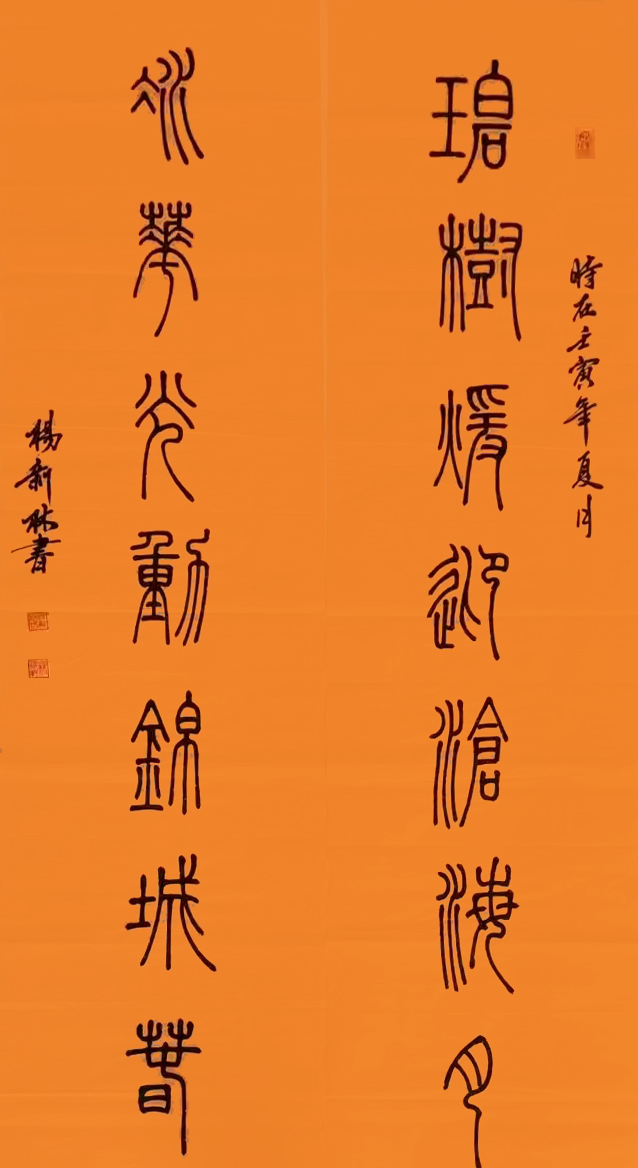 時在壬寅年夏月
碧樹煖迎滄海月
冰華光動錦城春
楊新林書